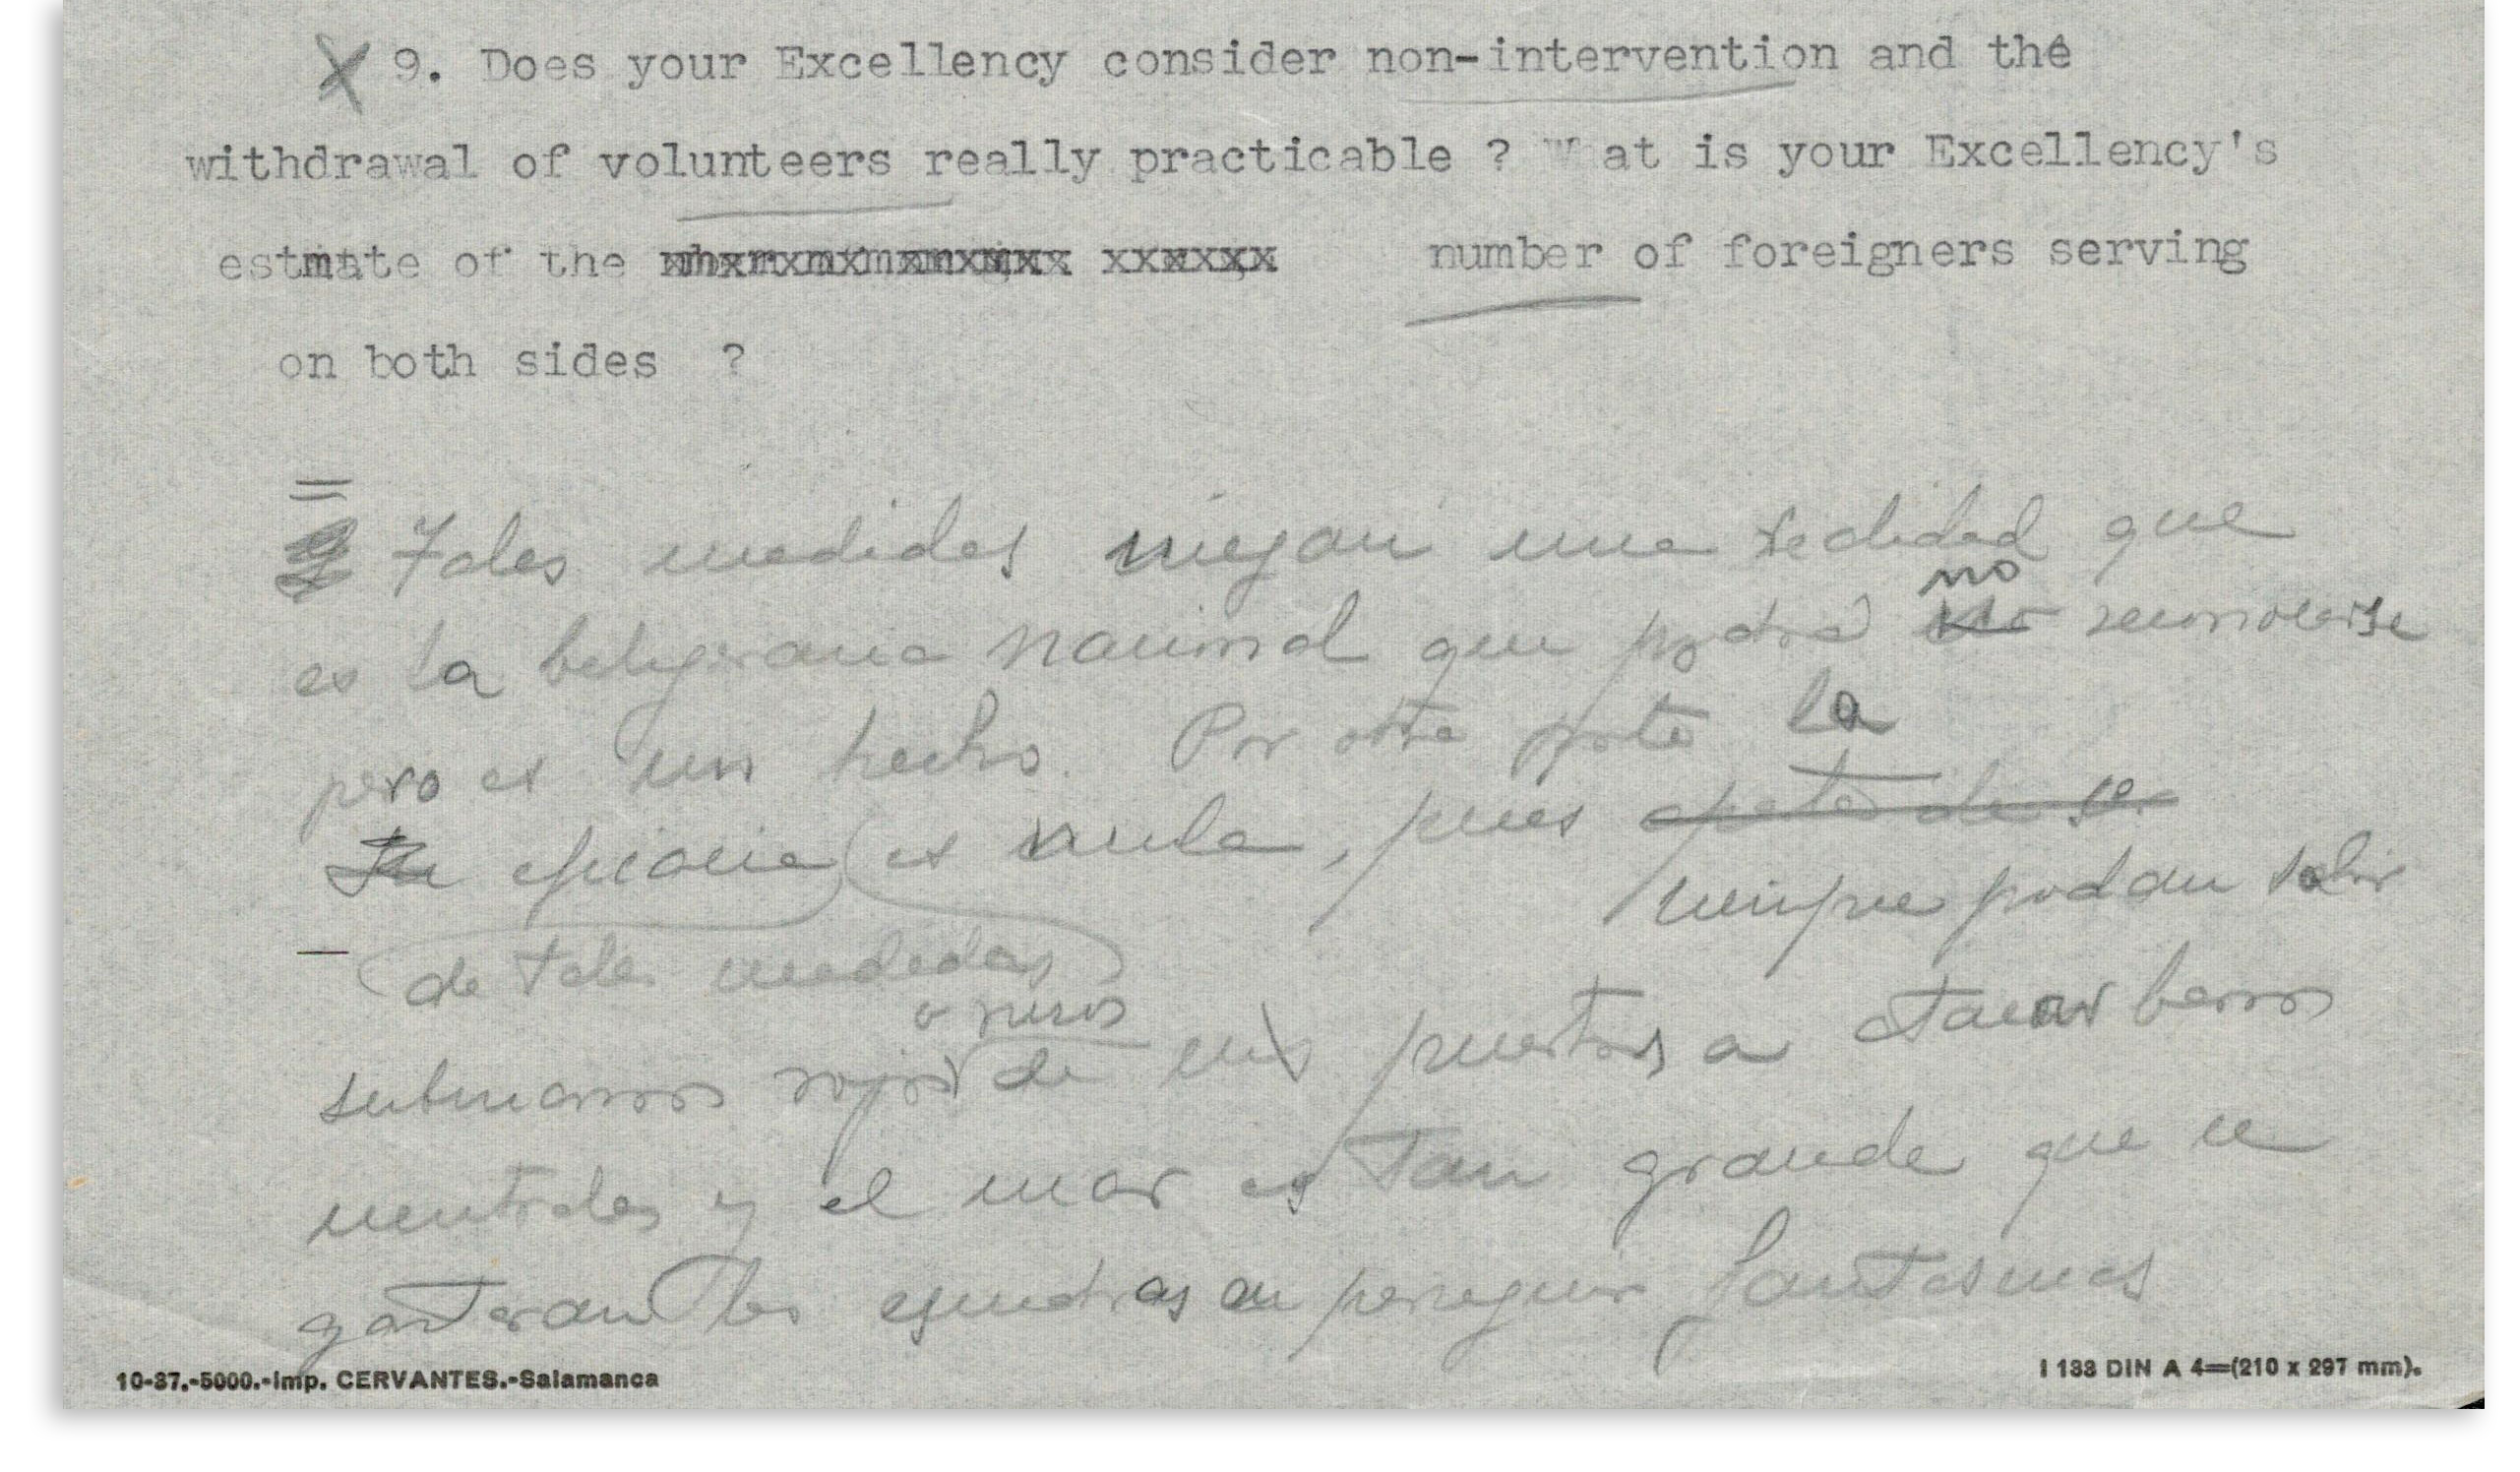 X 9. Does your Excellency consider non-intervention and the
withdrawal of volunteers really practicable ? What is your Excellency's
estmate of the number of foreigners serving
on both sides ?
Tales medidas niegan una realidad que
no
es la beligerancia nacional que podrá no reconocerse
pero es un hecho. Por otra parte la
Su eficacia es nula, pues
siempre podran salir
de tales medidas
o rusos
submarinos rojos de sus puertos a atacar barcos
neutrales y el mar es tan grande que se
gastaran las escuadras en perseguir fantasmas
10-37.-5000.-Imp. CERVANTES.-Salamanca
I 133 DIN A 4=(210 x 297 mm).